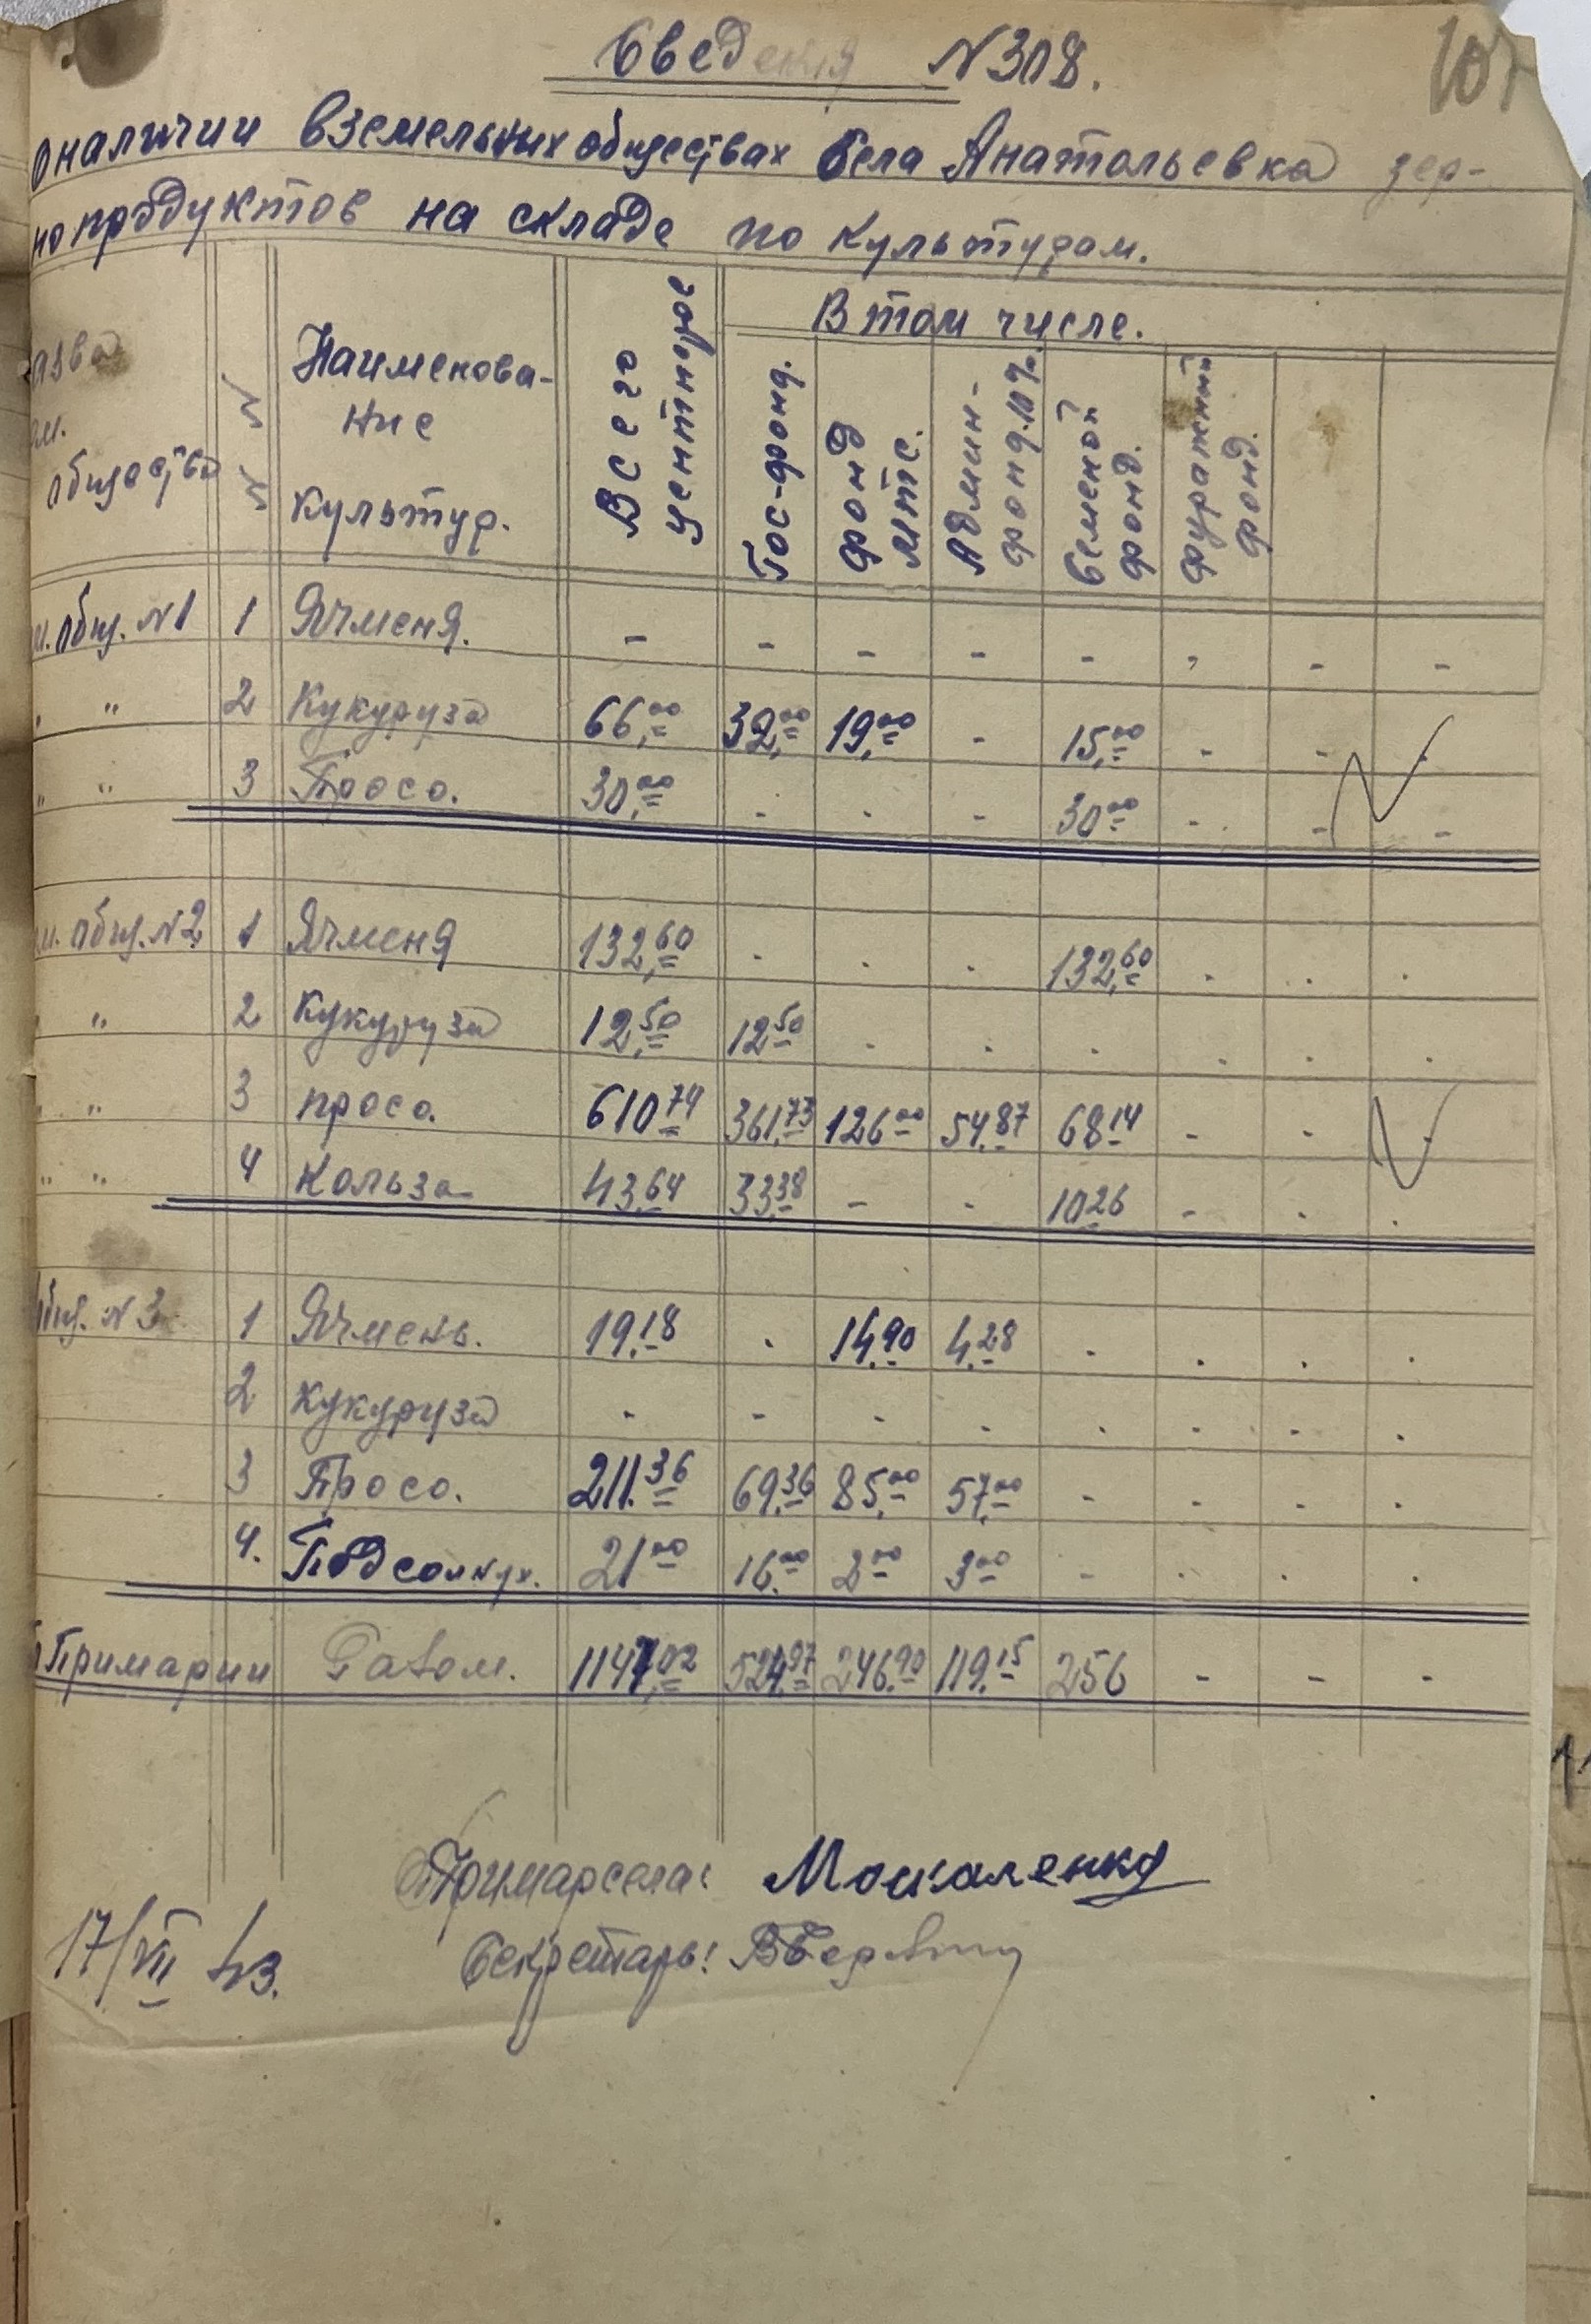 Сведения N308.
107
о наличии в земельных обществах Села Анатольевка зер-
нопродуктов на складе по культурам.
В том числе.
общества
N N
Наименова-
ние
культур.
Всего
центнеров
Гос-фонд.
Фонд
мтс.
Админ-
фонд. 10%.
Семеной
фонд.
Фуражный
фонд.
м. общ. N1 1 Ячменя. - - - - - - - -
" " 2 Кукуруза 66,00 32,00 19,00 - 15,00 - - -
" " 3 Просо. 30,00 - - - 30 00 - - -
м. общ. N2 1 Ячменя 132,60 - - - 132,60 - - -
" " 2 Кукуруза 12,50 12 50 - - - - - -
" " 3 просо. 610 74 361,73 126 00 54,87 68 14 - - -
" " 4 Кольза 43,64 33,38 - - 10 26 - - -
общ. N3 1 Ячмень. 19.18 - 14,90 4,28 - - - -
2 Кукуруза - - - - - - - -
3 Просо. 211.36 69.36 85,00 57,00 - - - -
4. Подсолнух. 21 00 16.00 2 00 3 00 - - - -
Примарии 1147,02 524,97 246.90 119.15 256 - - -
Примарсела: Москаленко
17/VII 43. Секретарь: